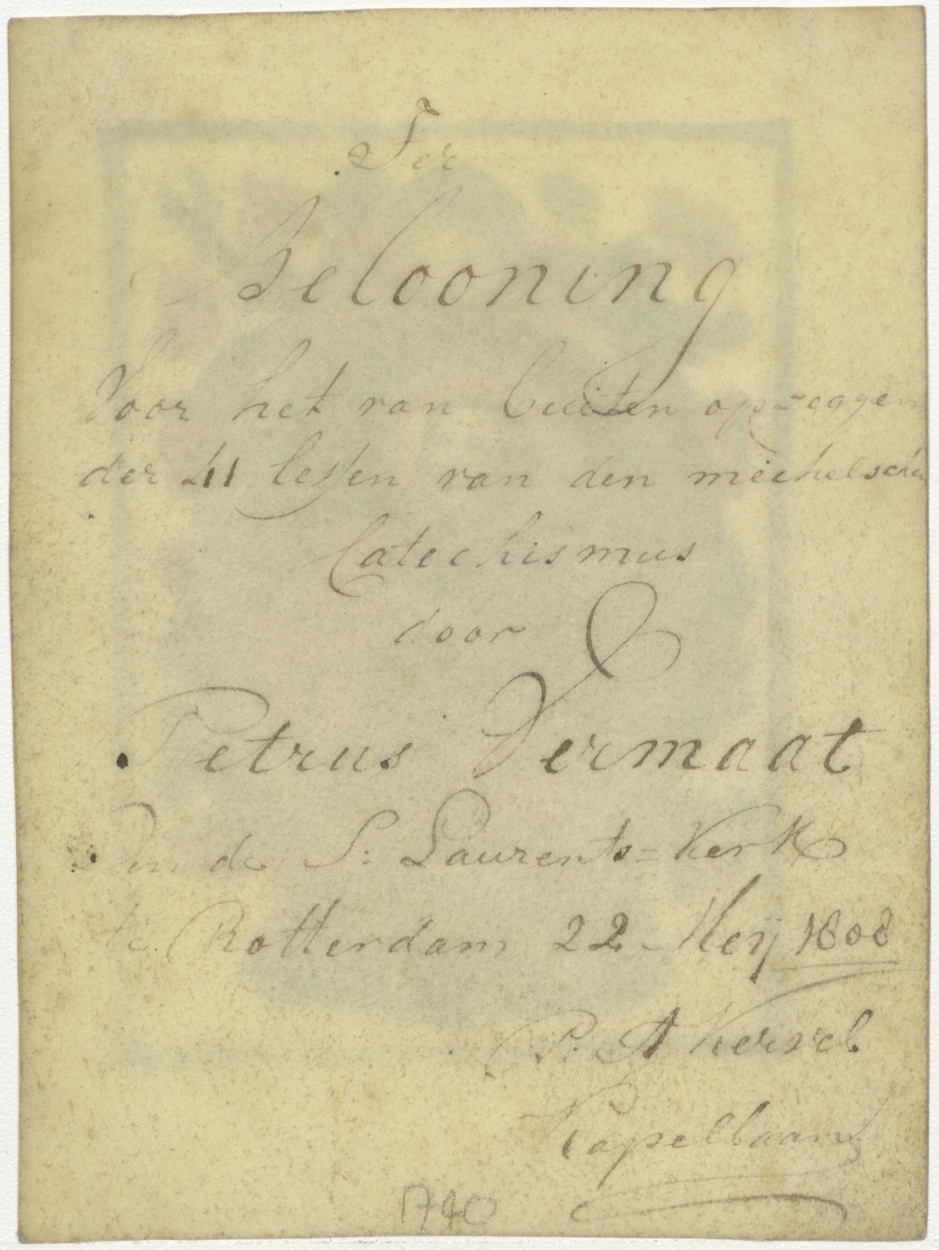 Ter
Belooning
Voor het van buiten op=zeggen
der 41 lessen van den mechelsche
Catechismus
door
Petrus Vermaat
In de S: Laurents=Kerk
te Rotterdam 22 Meij 1808
P. A Kervel
Kapellaan
1740